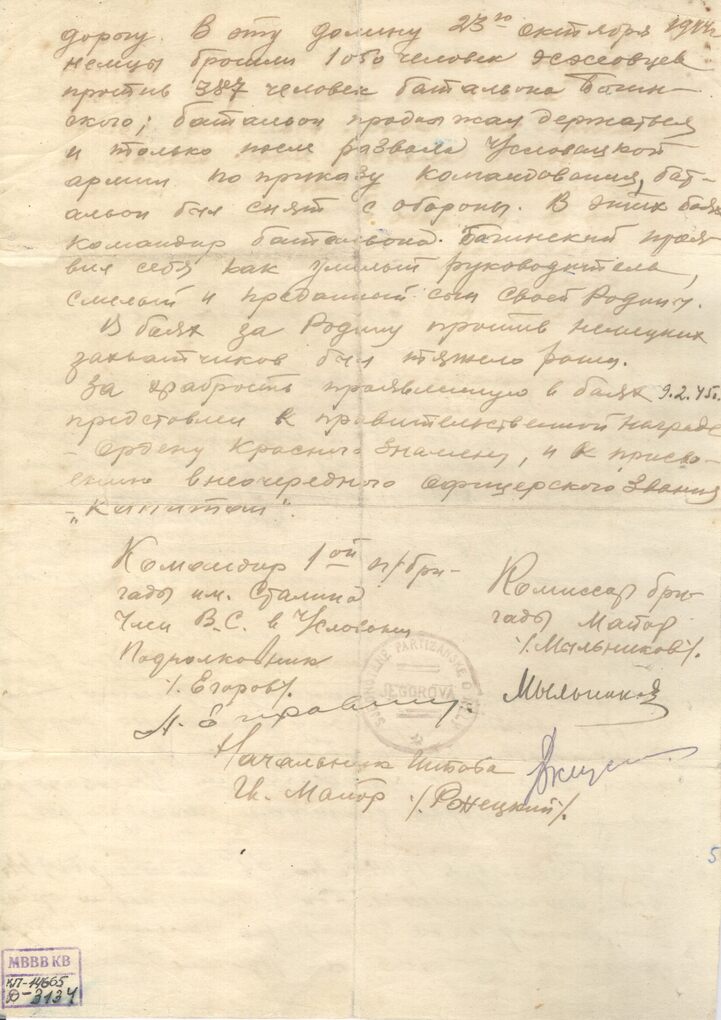 дорогу. В эту долину 23го октября 1944г
немцы бросили 1050 человек эсэсовцев
против 387 человек батальона Багин-
ского; батальон продолжал держаться
и только после развала Чехословацкой
армии по приказу командования, бат-
альон был снят с обороны. В этих боях
командир батальона Багинский проя-
вил себя как умелый руководитель,
смелый и преданный сын своей Родины.
В боях за Родину против немецких
захватчиков был тяжело ранен.
За храбрость проявленную в боях 9.2.45г.
представлен к правительственной награде
- Ордену Красного Знамени, и к присво-
ению внеочередного офицерского звания
"Капитан".
Командир 1ой п/бри-
гады им. Сталина
Член В.С. в
Подполковник
/. Егоров/.
Комиссар бри-
гады Майор
/. Мыльников/.
Мыльников
SLOVENSKE PARTIZANSKE ODDIELY
JEGOROVA
Начальник Штаба
Гв. Майор /. Ржецкий/.
5
МВВВ КВ
КП-14665
Д-3134